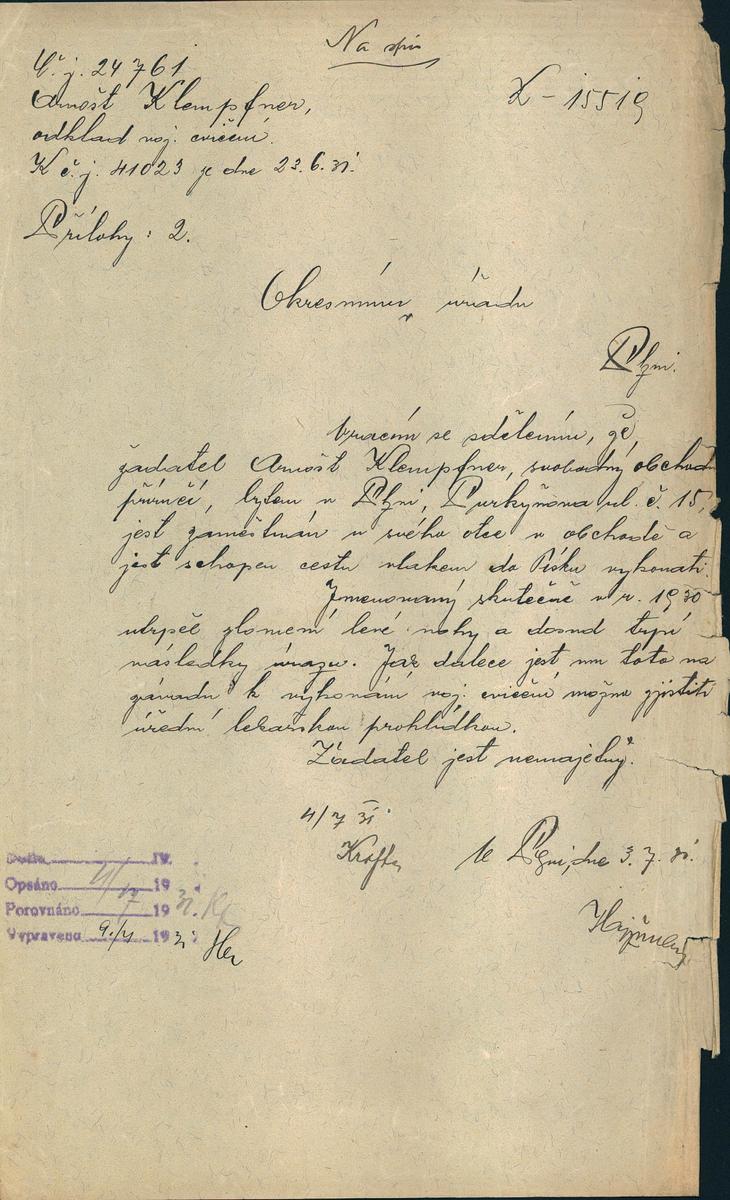 Na spis
Č. j. 24761
X - 15519
Arnošt Klempfner,
odklad voj. cvičení.
K č. j. 41023 ze dne 23.6.31.
Přílohy: 2.
Okresnímu úřadu
v
Plzni.
Vracím se sdělením, že
žadatel Arnošt Klempfner, svobodný obchod.
příručí, bytem v Plzni, Purkyňova ul. č. 15,
jest zaměstnán u svého otce v obchodě a
jest schopen cestu vlakem do Písku vykonati.
Jmenovaný skutečně v r. 1930
utrpěl zlomení levé nohy a dosud trpí
následky úrazu. Jak dalece jest mu toto na
závadu k vykonání voj. cvičení možno zjistiti
úřední lékařskou prohlídkou.
Žadatel jest nemajetný.
4/7 31.
V Plzni, dne 3.7.31.
Došlo 19
Opsáno 4/7 1931. Kr
Porovnáno 19
Vypraveno 9./7 1931